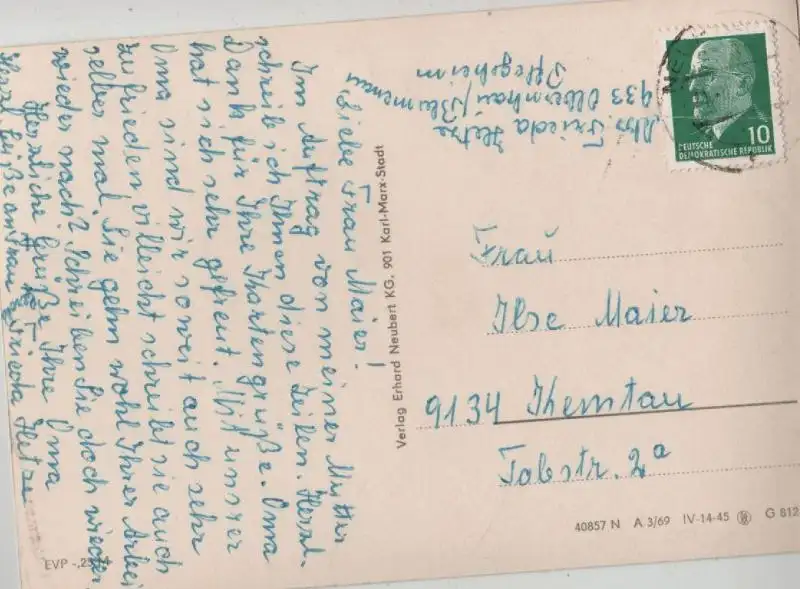 Liebe Frau Maier!
Im Auftrag von meiner Mutter
schreib ich Ihnen diese Zeilen. Herzl.
Dank für Ihre Khartengrüße. Oma
hat sich sehr gefreut. Mit unsrer
Oma sind wir soweit auch sehr
zufrieden villeicht schreibt sie auch
selber mal. Sie gehn wohl Ihrer Arbeit
wieder nach? Schreiben Sie doch wieder
Herzliche Grüße Ihre Oma
Herzl. Grüße an Frau Frieda Hetze
Abs. Frieda Hetze
933 Olbernhau/Blumenau
Pflegeheim
DEUTSCHE
DEMOKRATISCHE REPUBLIK
10
Verlag Erhard Neubert KG, 901 Karl-Marx-Stadt
Frau
Ilse Maier
9134 Khemtau
Talstr. 2a
40857 N A 3/69 IV-14-45 G 812
EVP -,25